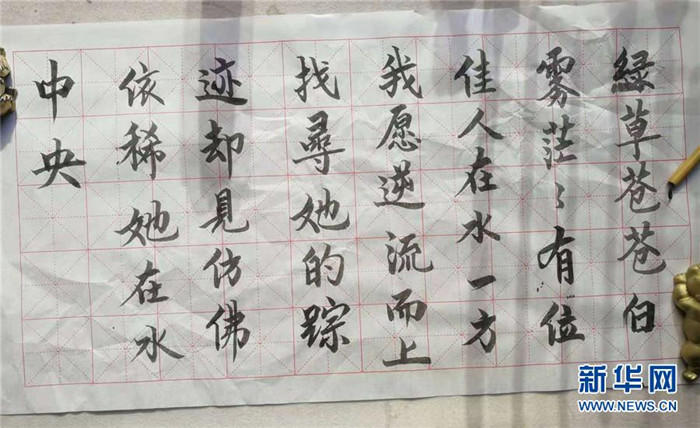 緑草苍苍白
雾茫〻有位
佳人在水一方
我愿逆流而上
找尋她的踪
迹却見仿佛
依稀她在水
中央
新华网
WWW.NEWS.CN